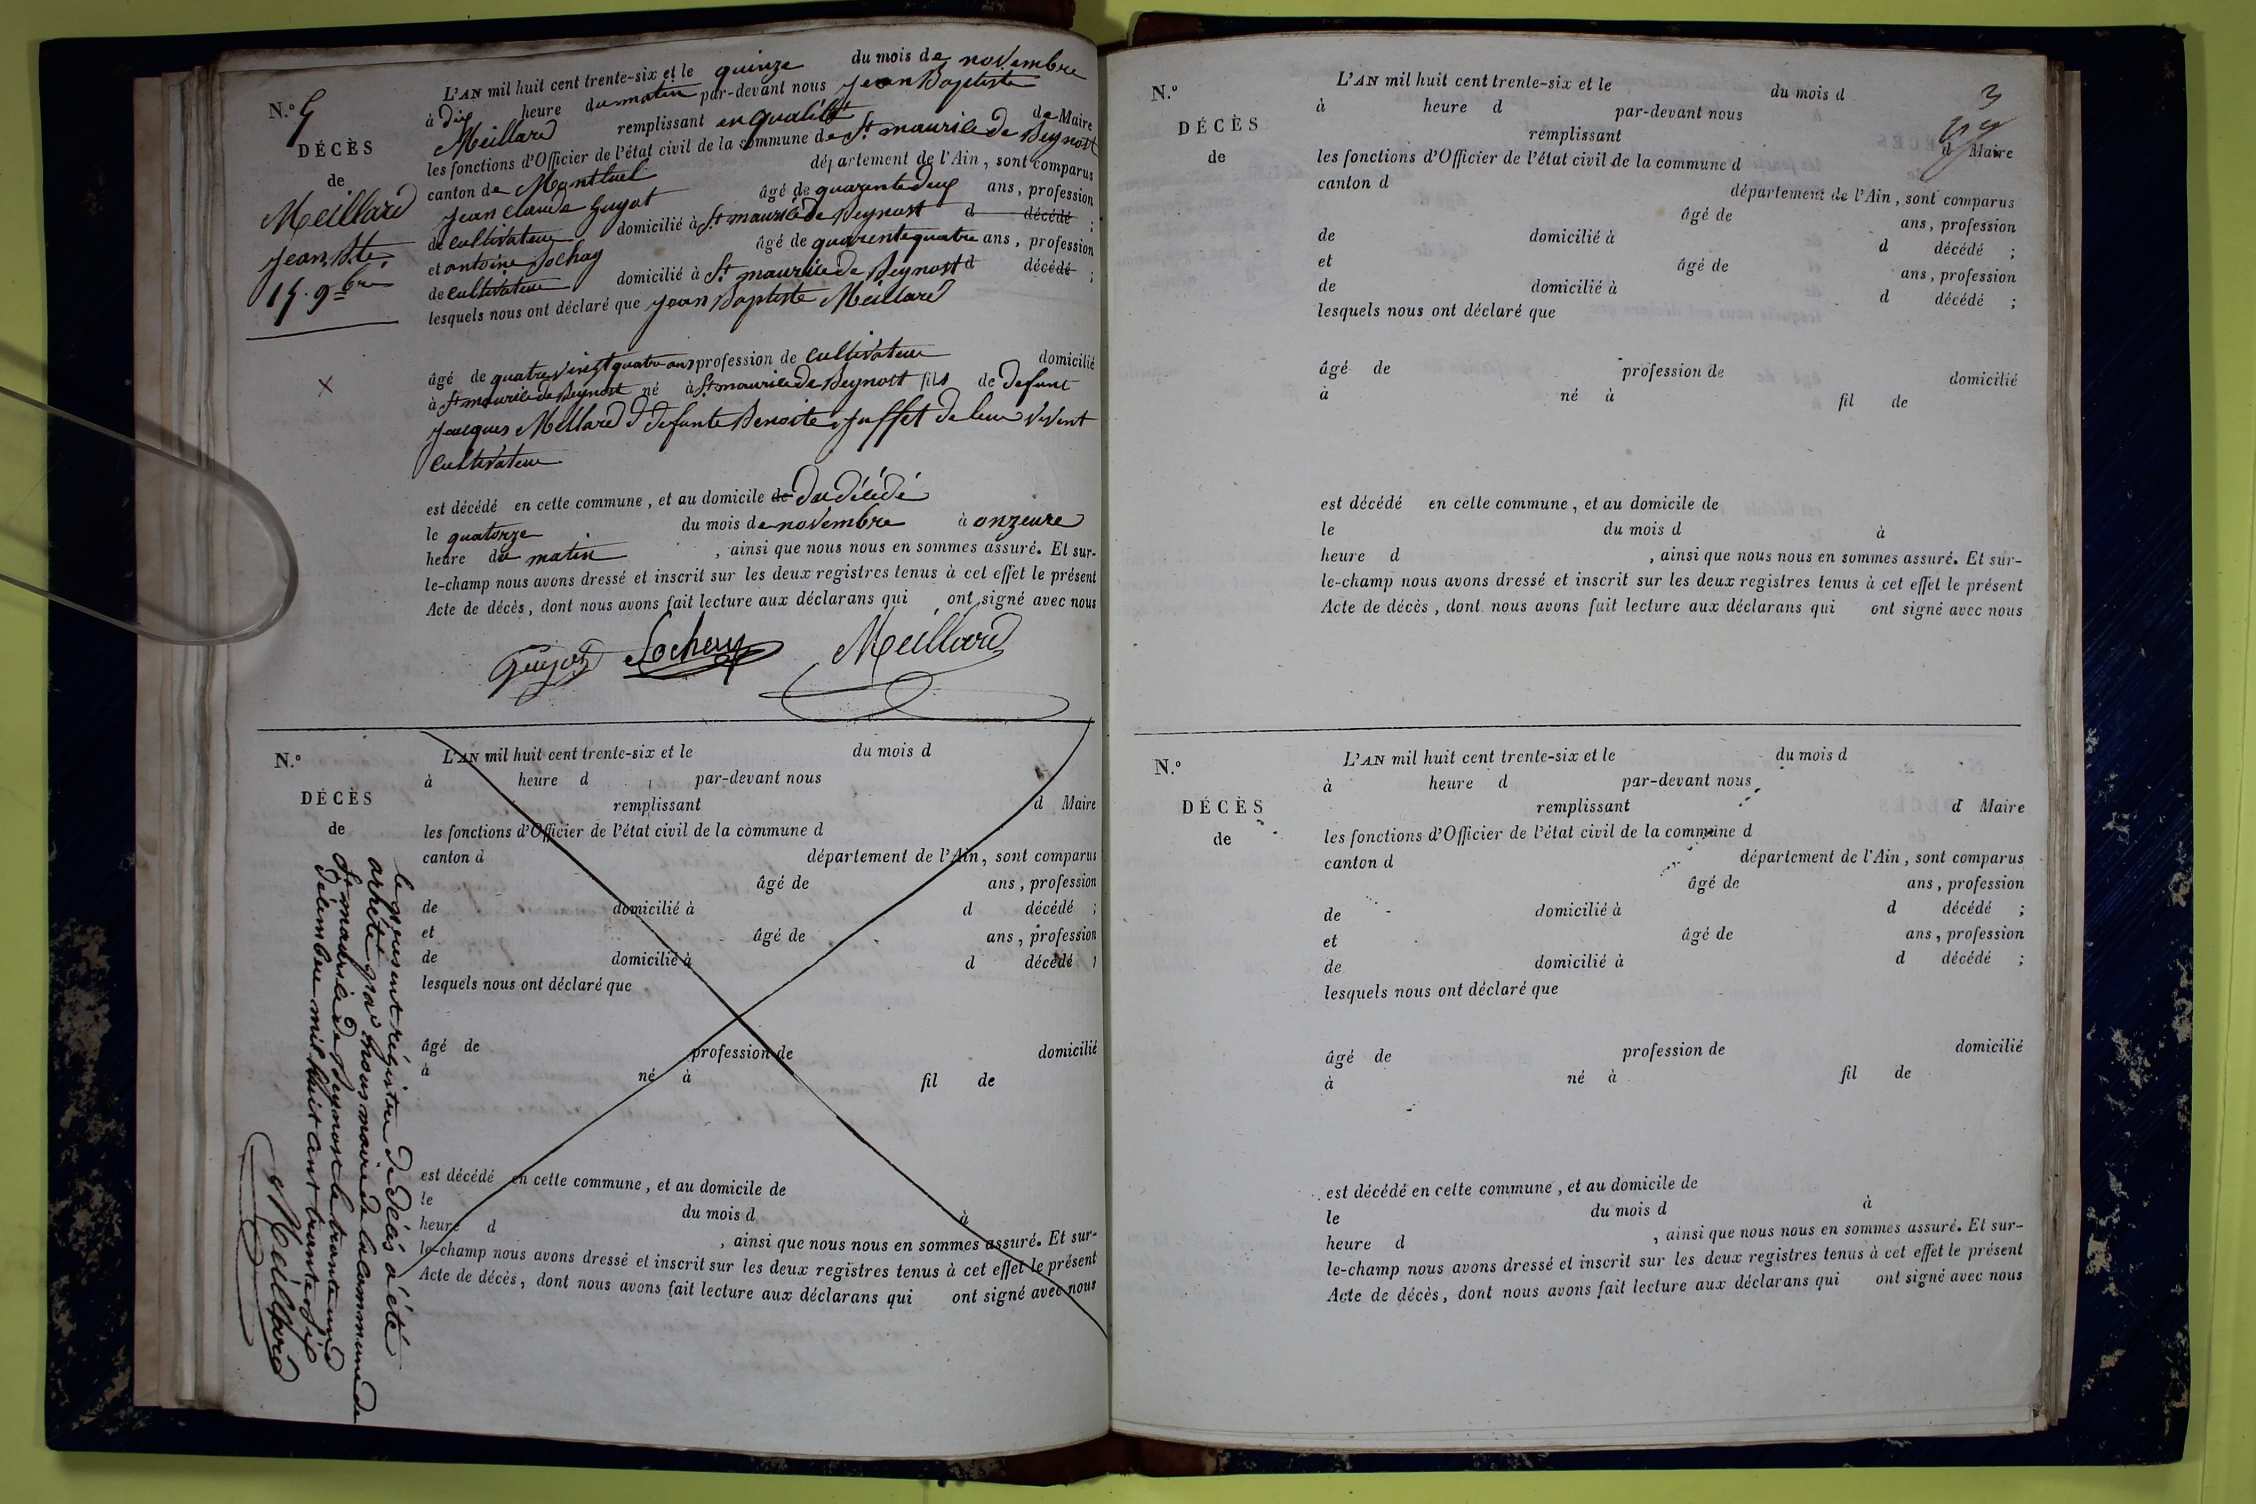 N.º 5
DÉCÈS
de
Meillard
Jean Bte
15. 9bre
L'AN mil huit cent trente-six et le quinze du mois de novembre
à dix heure du matin par-devant nous Jean Baptiste
Meillard remplissant en qualité de Maire
les fonctions d'Officier de l'état civil de la commune de St maurice de Beynost
canton de Montluel département de l'Ain, sont comparus
Jean Claude Guyot âgé de quarente deux ans, profession
de cultivateur domicilié à St maurice de Beynost d décédé ;
et antoine Jochay âgé de quarente quatre ans, profession
de cultivateur domicilié à St maurice de Beynost d décédé ;
lesquels nous ont déclaré que Jean Baptiste Meillard
âgé de quatre vingt quatre ans profession de cultivateur domicilié
à St maurice de Beynost né à St maurice de Beynost fils de defunt
Jacques Mellard & defunte Benoite Juffet de leur vivent
cultivateur
est décédé en cette commune, et au domicile de du décédé
le quatorze du mois de novembre à onzeure
heure du matin , ainsi que nous nous en sommes assuré. Et sur-
le-champ nous avons dressé et inscrit sur les deux registres tenus à cet effet le présent
Acte de décès, dont nous avons fait lecture aux déclarans qui ont signé avec nous
Guyot Jochay Meillard
N.º
DÉCÈS
de
L'AN mil huit cent trente-six et le du mois d
à heure d par-devant nous
remplissant d Maire
les fonctions d'Officier de l'état civil de la commune d
canton d département de l'Ain, sont comparus
âgé de ans, profession
de domicilié à d décédé ;
et âgé de ans, profession
de domicilié à d décédé ;
lesquels nous ont déclaré que
âgé de profession de domicilié
à né à fil de
est décédé en cette commune, et au domicile de
le du mois d à
heure d , ainsi que nous nous en sommes assuré. Et sur-
le-champ nous avons dressé et inscrit sur les deux registres tenus à cet effet le présent
Acte de décès, dont nous avons fait lecture aux déclarans qui ont signé avec nous
le present régistre de décés a été
arrêté par nous maire de la commune de
St maurice de Beynost le trante un
décembre mil huit cent trante six
Meillard
3
N.º
DÉCÈS
de
L'AN mil huit cent trente-six et le du mois d
à heure d par-devant nous
remplissant d Maire
les fonctions d'Officier de l'état civil de la commune d
canton d département de l'Ain, sont comparus
âgé de ans, profession
de domicilié à d décédé ;
et âgé de ans, profession
de domicilié à d décédé ;
lesquels nous ont déclaré que
âgé de profession de domicilié
à né à fil de
est décédé en cette commune, et au domicile de
le du mois d à
heure d , ainsi que nous nous en sommes assuré. Et sur-
le-champ nous avons dressé et inscrit sur les deux registres tenus à cet effet le présent
Acte de décès, dont nous avons fait lecture aux déclarans qui ont signé avec nous
N.º
DÉCÈS
de
L'AN mil huit cent trente-six et le du mois d
à heure d par-devant nous
remplissant d Maire
les fonctions d'Officier de l'état civil de la commune d
canton d département de l'Ain, sont comparus
âgé de ans, profession
de domicilié à d décédé ;
et âgé de ans, profession
de domicilié à d décédé ;
lesquels nous ont déclaré que
âgé de profession de domicilié
à né à fil de
est décédé en cette commune, et au domicile de
le du mois d à
heure d , ainsi que nous nous en sommes assuré. Et sur-
le-champ nous avons dressé et inscrit sur les deux registres tenus à cet effet le présent
Acte de décès, dont nous avons fait lecture aux déclarans qui ont signé avec nous